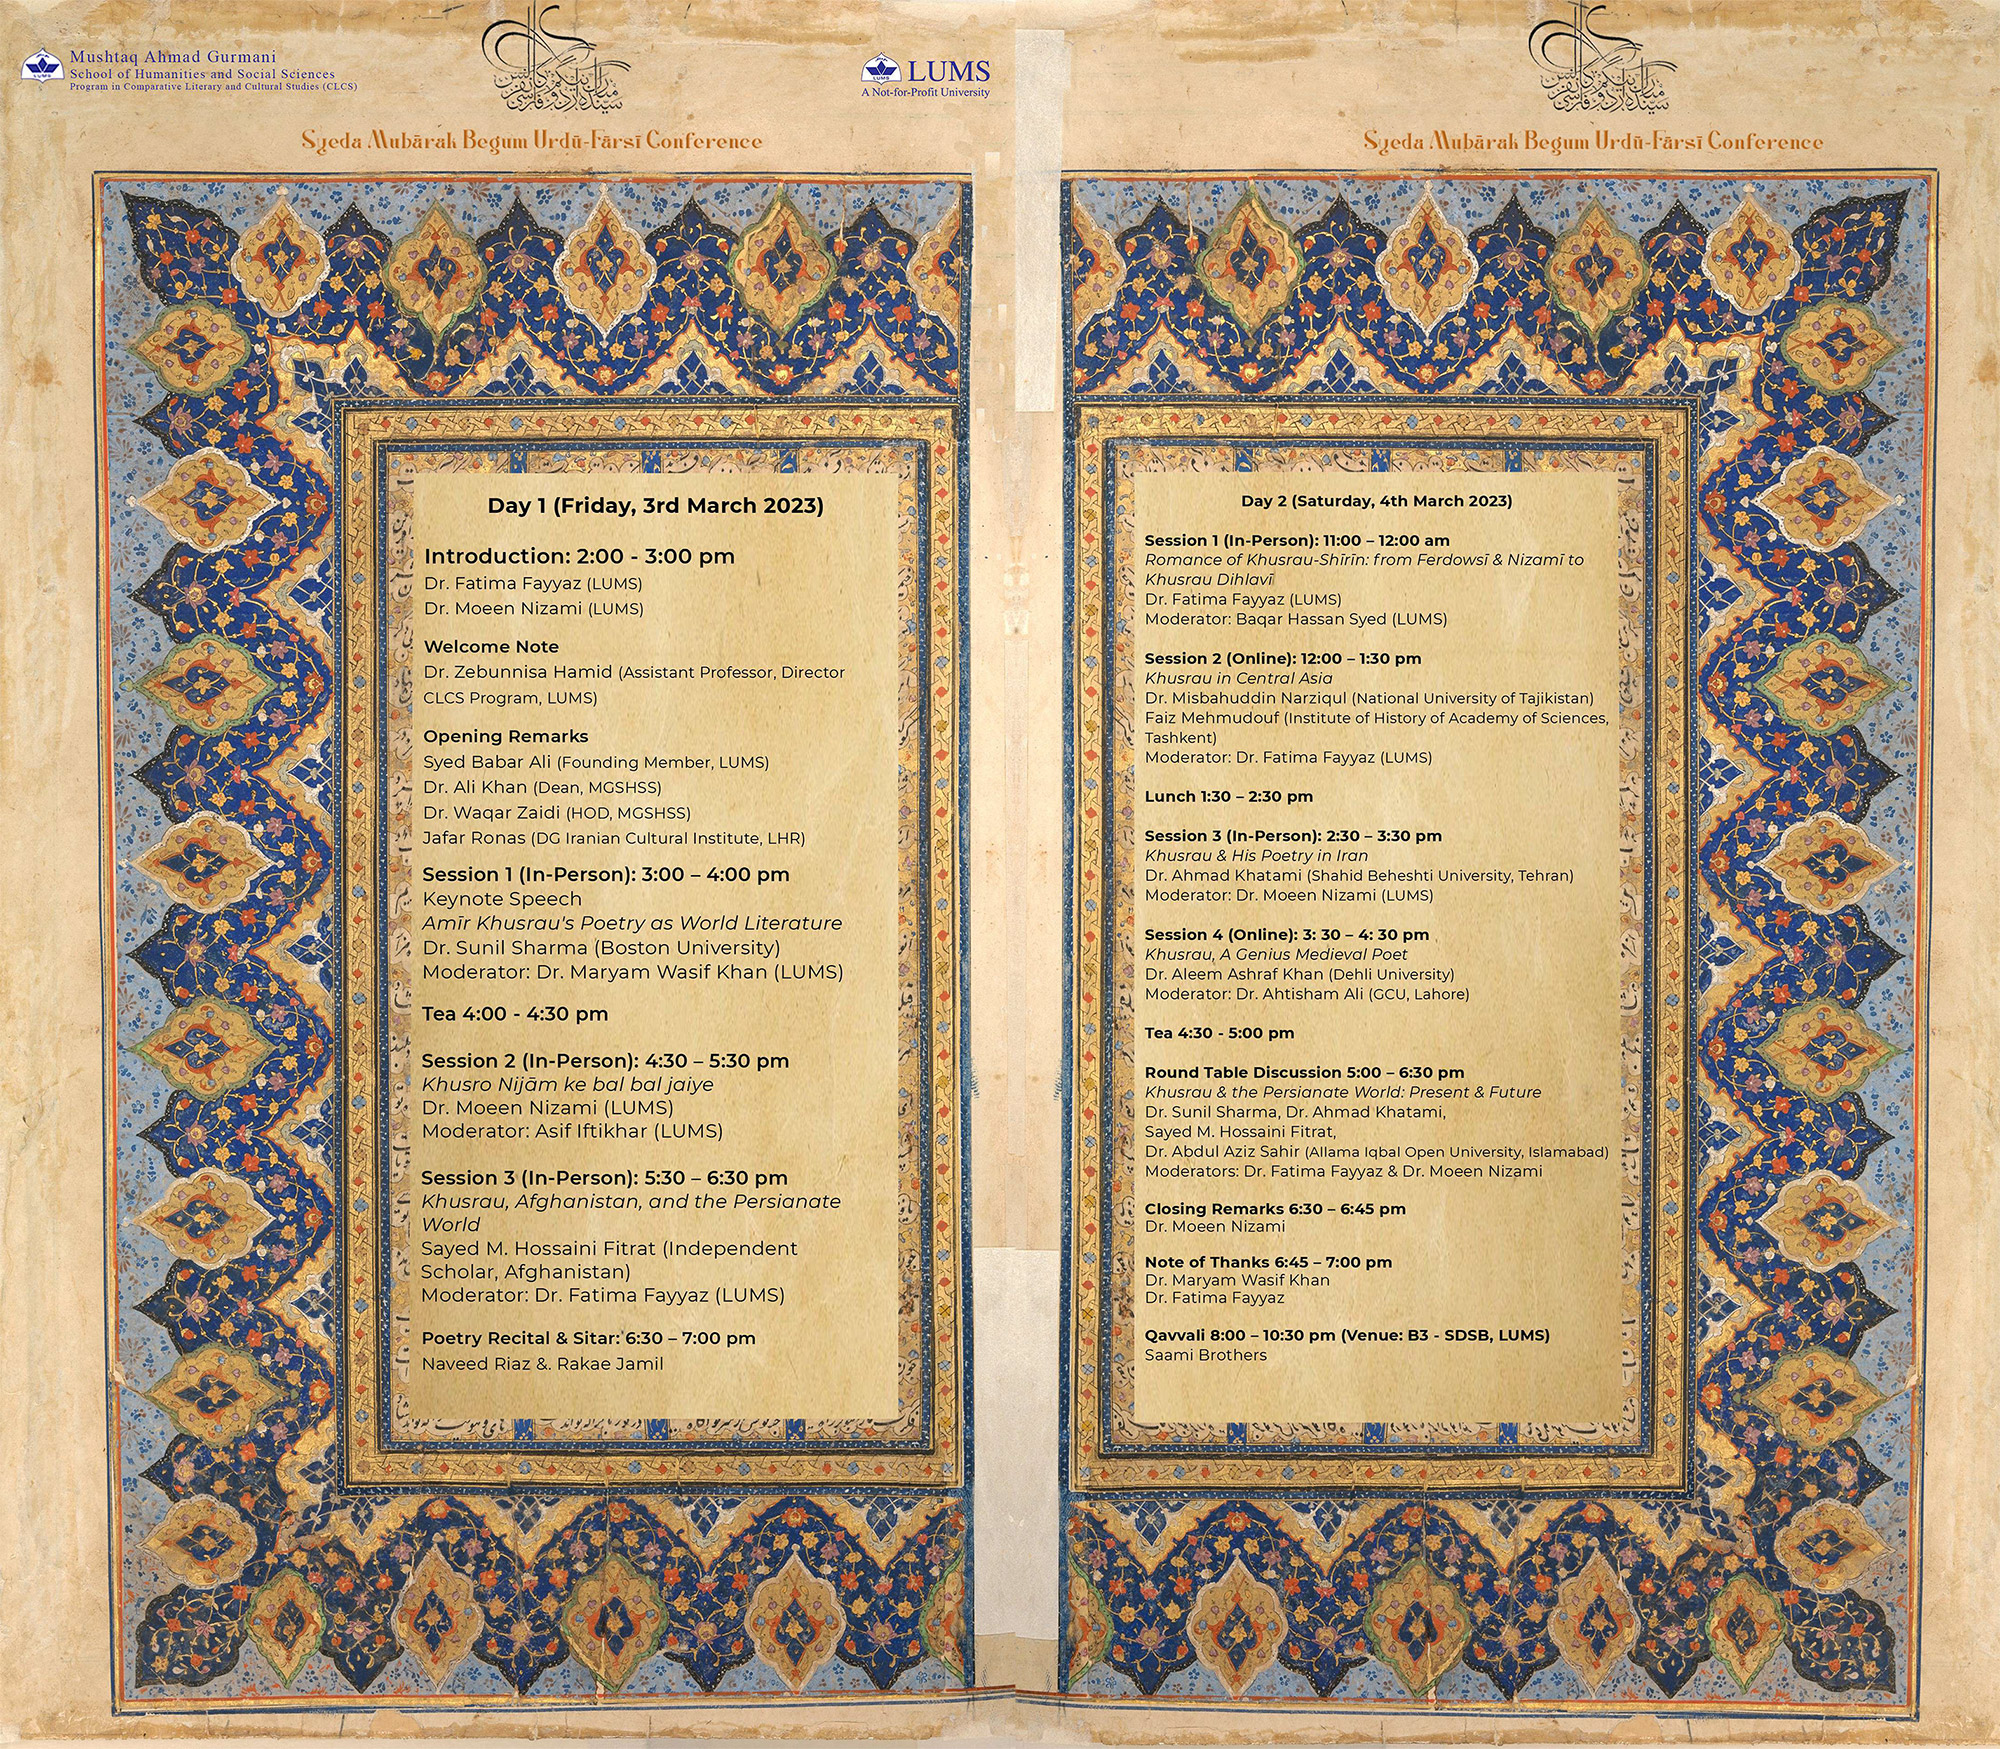 Mushtaq Ahmad Gurmani
School of Humanities and Social Sciences
Program in Comparative Literary and Cultural Studies (CLCS)
LUMS
LUMS
A Not-for-Profit University
LUMS
سیدہ مبارک بیگم اردو فارسی کانفرنس
Syeda Mubārak Begum Urdū-Fārsī Conference
Day 1 (Friday, 3rd March 2023)
Introduction: 2:00 - 3:00 pm
Dr. Fatima Fayyaz (LUMS)
Dr. Moeen Nizami (LUMS)
Welcome Note
Dr. Zebunnisa Hamid (Assistant Professor, Director
CLCS Program, LUMS)
Opening Remarks
Syed Babar Ali (Founding Member, LUMS)
Dr. Ali Khan (Dean, MGSHSS)
Dr. Waqar Zaidi (HOD, MGSHSS)
Jafar Ronas (DG Iranian Cultural Institute, LHR)
Session 1 (In-Person): 3:00 – 4:00 pm
Keynote Speech
Amīr Khusrau's Poetry as World Literature
Dr. Sunil Sharma (Boston University)
Moderator: Dr. Maryam Wasif Khan (LUMS)
Tea 4:00 - 4:30 pm
Session 2 (In-Person): 4:30 – 5:30 pm
Khusro Nijām ke bal bal jaiye
Dr. Moeen Nizami (LUMS)
Moderator: Asif Iftikhar (LUMS)
Session 3 (In-Person): 5:30 – 6:30 pm
Khusrau, Afghanistan, and the Persianate
World
Sayed M. Hossaini Fitrat (Independent
Scholar, Afghanistan)
Moderator: Dr. Fatima Fayyaz (LUMS)
Poetry Recital & Sitar: 6:30 – 7:00 pm
Naveed Riaz &. Rakae Jamil
سیدہ مبارک بیگم اردو فارسی کانفرنس
Syeda Mubārak Begum Urdū-Fārsī Conference
Day 2 (Saturday, 4th March 2023)
Session 1 (In-Person): 11:00 – 12:00 am
Romance of Khusrau-Shīrīn: from Ferdowsī & Nizamī to
Khusrau Dihlavī
Dr. Fatima Fayyaz (LUMS)
Moderator: Baqar Hassan Syed (LUMS)
Session 2 (Online): 12:00 – 1:30 pm
Khusrau in Central Asia
Dr. Misbahuddin Narziqul (National University of Tajikistan)
Faiz Mehmudouf (Institute of History of Academy of Sciences,
Tashkent)
Moderator: Dr. Fatima Fayyaz (LUMS)
Lunch 1:30 – 2:30 pm
Session 3 (In-Person): 2:30 – 3:30 pm
Khusrau & His Poetry in Iran
Dr. Ahmad Khatami (Shahid Beheshti University, Tehran)
Moderator: Dr. Moeen Nizami (LUMS)
Session 4 (Online): 3: 30 – 4: 30 pm
Khusrau, A Genius Medieval Poet
Dr. Aleem Ashraf Khan (Dehli University)
Moderator: Dr. Ahtisham Ali (GCU, Lahore)
Tea 4:30 - 5:00 pm
Round Table Discussion 5:00 – 6:30 pm
Khusrau & the Persianate World: Present & Future
Dr. Sunil Sharma, Dr. Ahmad Khatami,
Sayed M. Hossaini Fitrat,
Dr. Abdul Aziz Sahir (Allama Iqbal Open University, Islamabad)
Moderators: Dr. Fatima Fayyaz & Dr. Moeen Nizami
Closing Remarks 6:30 – 6:45 pm
Dr. Moeen Nizami
Note of Thanks 6:45 – 7:00 pm
Dr. Maryam Wasif Khan
Dr. Fatima Fayyaz
Qavvali 8:00 – 10:30 pm (Venue: B3 - SDSB, LUMS)
Saami Brothers